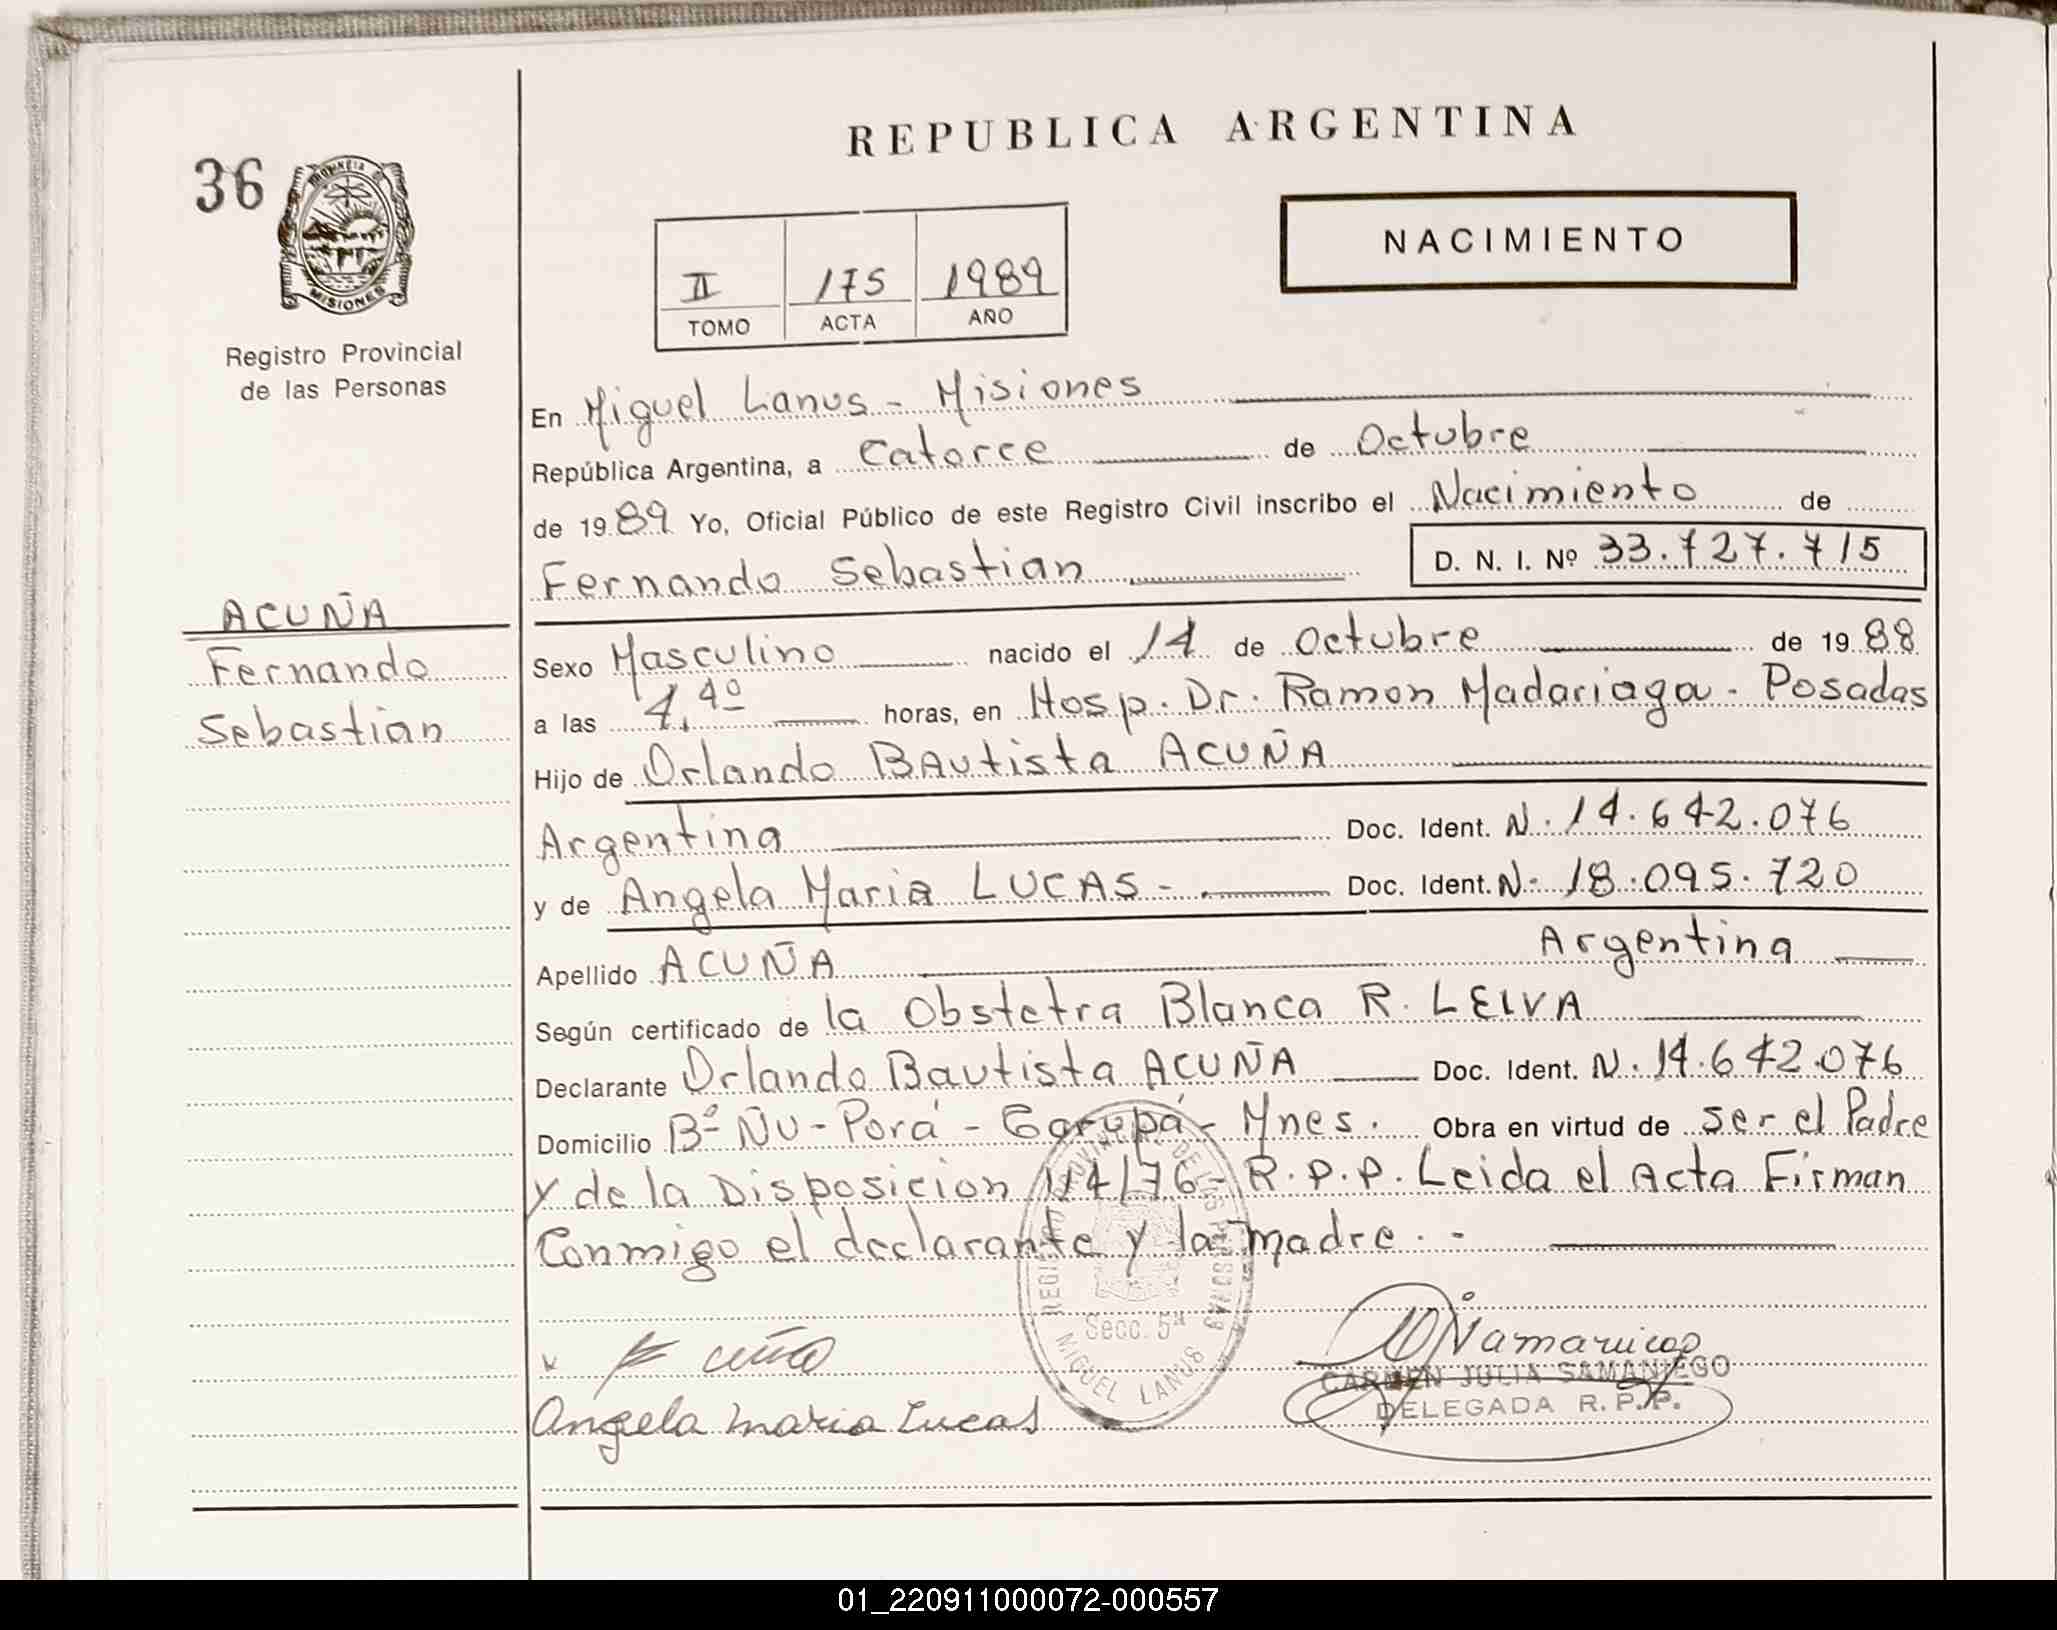 36
PROVINCIA DE MISIONES
Registro Provincial
de las Personas
ACUÑA
Fernando
Sebastian
REPUBLICA ARGENTINA
NACIMIENTO
II 175 1989
TOMO ACTA AÑO
En Miguel Lanus - Misiones
República Argentina, a Catorce de Octubre
de 1989 Yo, Oficial Público de este Registro Civil inscribo el Nacimiento de
Fernando Sebastian D. N. I. Nº 33.727.715
Sexo Masculino nacido el 14 de Octubre de 1988
a las 4,40 horas, en Hosp. Dr. Ramon Madariaga - Posadas
Hijo de Orlando BAutista ACUÑA
Argentina Doc. Ident. N. 14.642.076
y de Angela Maria LUCAS - Doc. Ident. N. 18.095.720
Argentina
Apellido ACUÑA
Según certificado de la Obstetra Blanca R. LEIVA
Declarante Orlando Bautista ACUÑA Doc. Ident. N. 14.642.076
Domicilio Bº ÑU - Porá - Garupá - Mnes. Obra en virtud de ser el Padre
y de la Disposicion 114/76 - R.P.P. Leida el Acta Firman
Conmigo el declarante y la madre. -
REGISTRO PROVINCIAL DE LAS PERSONAS
Secc. 5ª
MIGUEL LANUS
Angela maria Lucas
CARMEN JULIA SAMANIEGO
DELEGADA R.P.P.
01_220911000072-000557